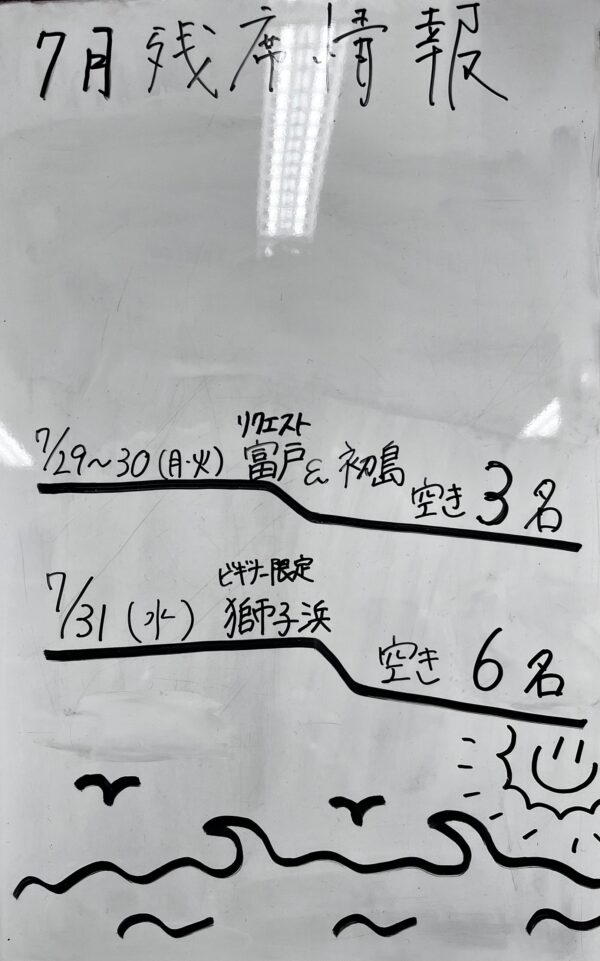 7月残席情報
リクエスト
7/29～30(月・火) 富戸&初島
空き3名
ビギナー限定
7/31(水) 獅子浜
空き6名